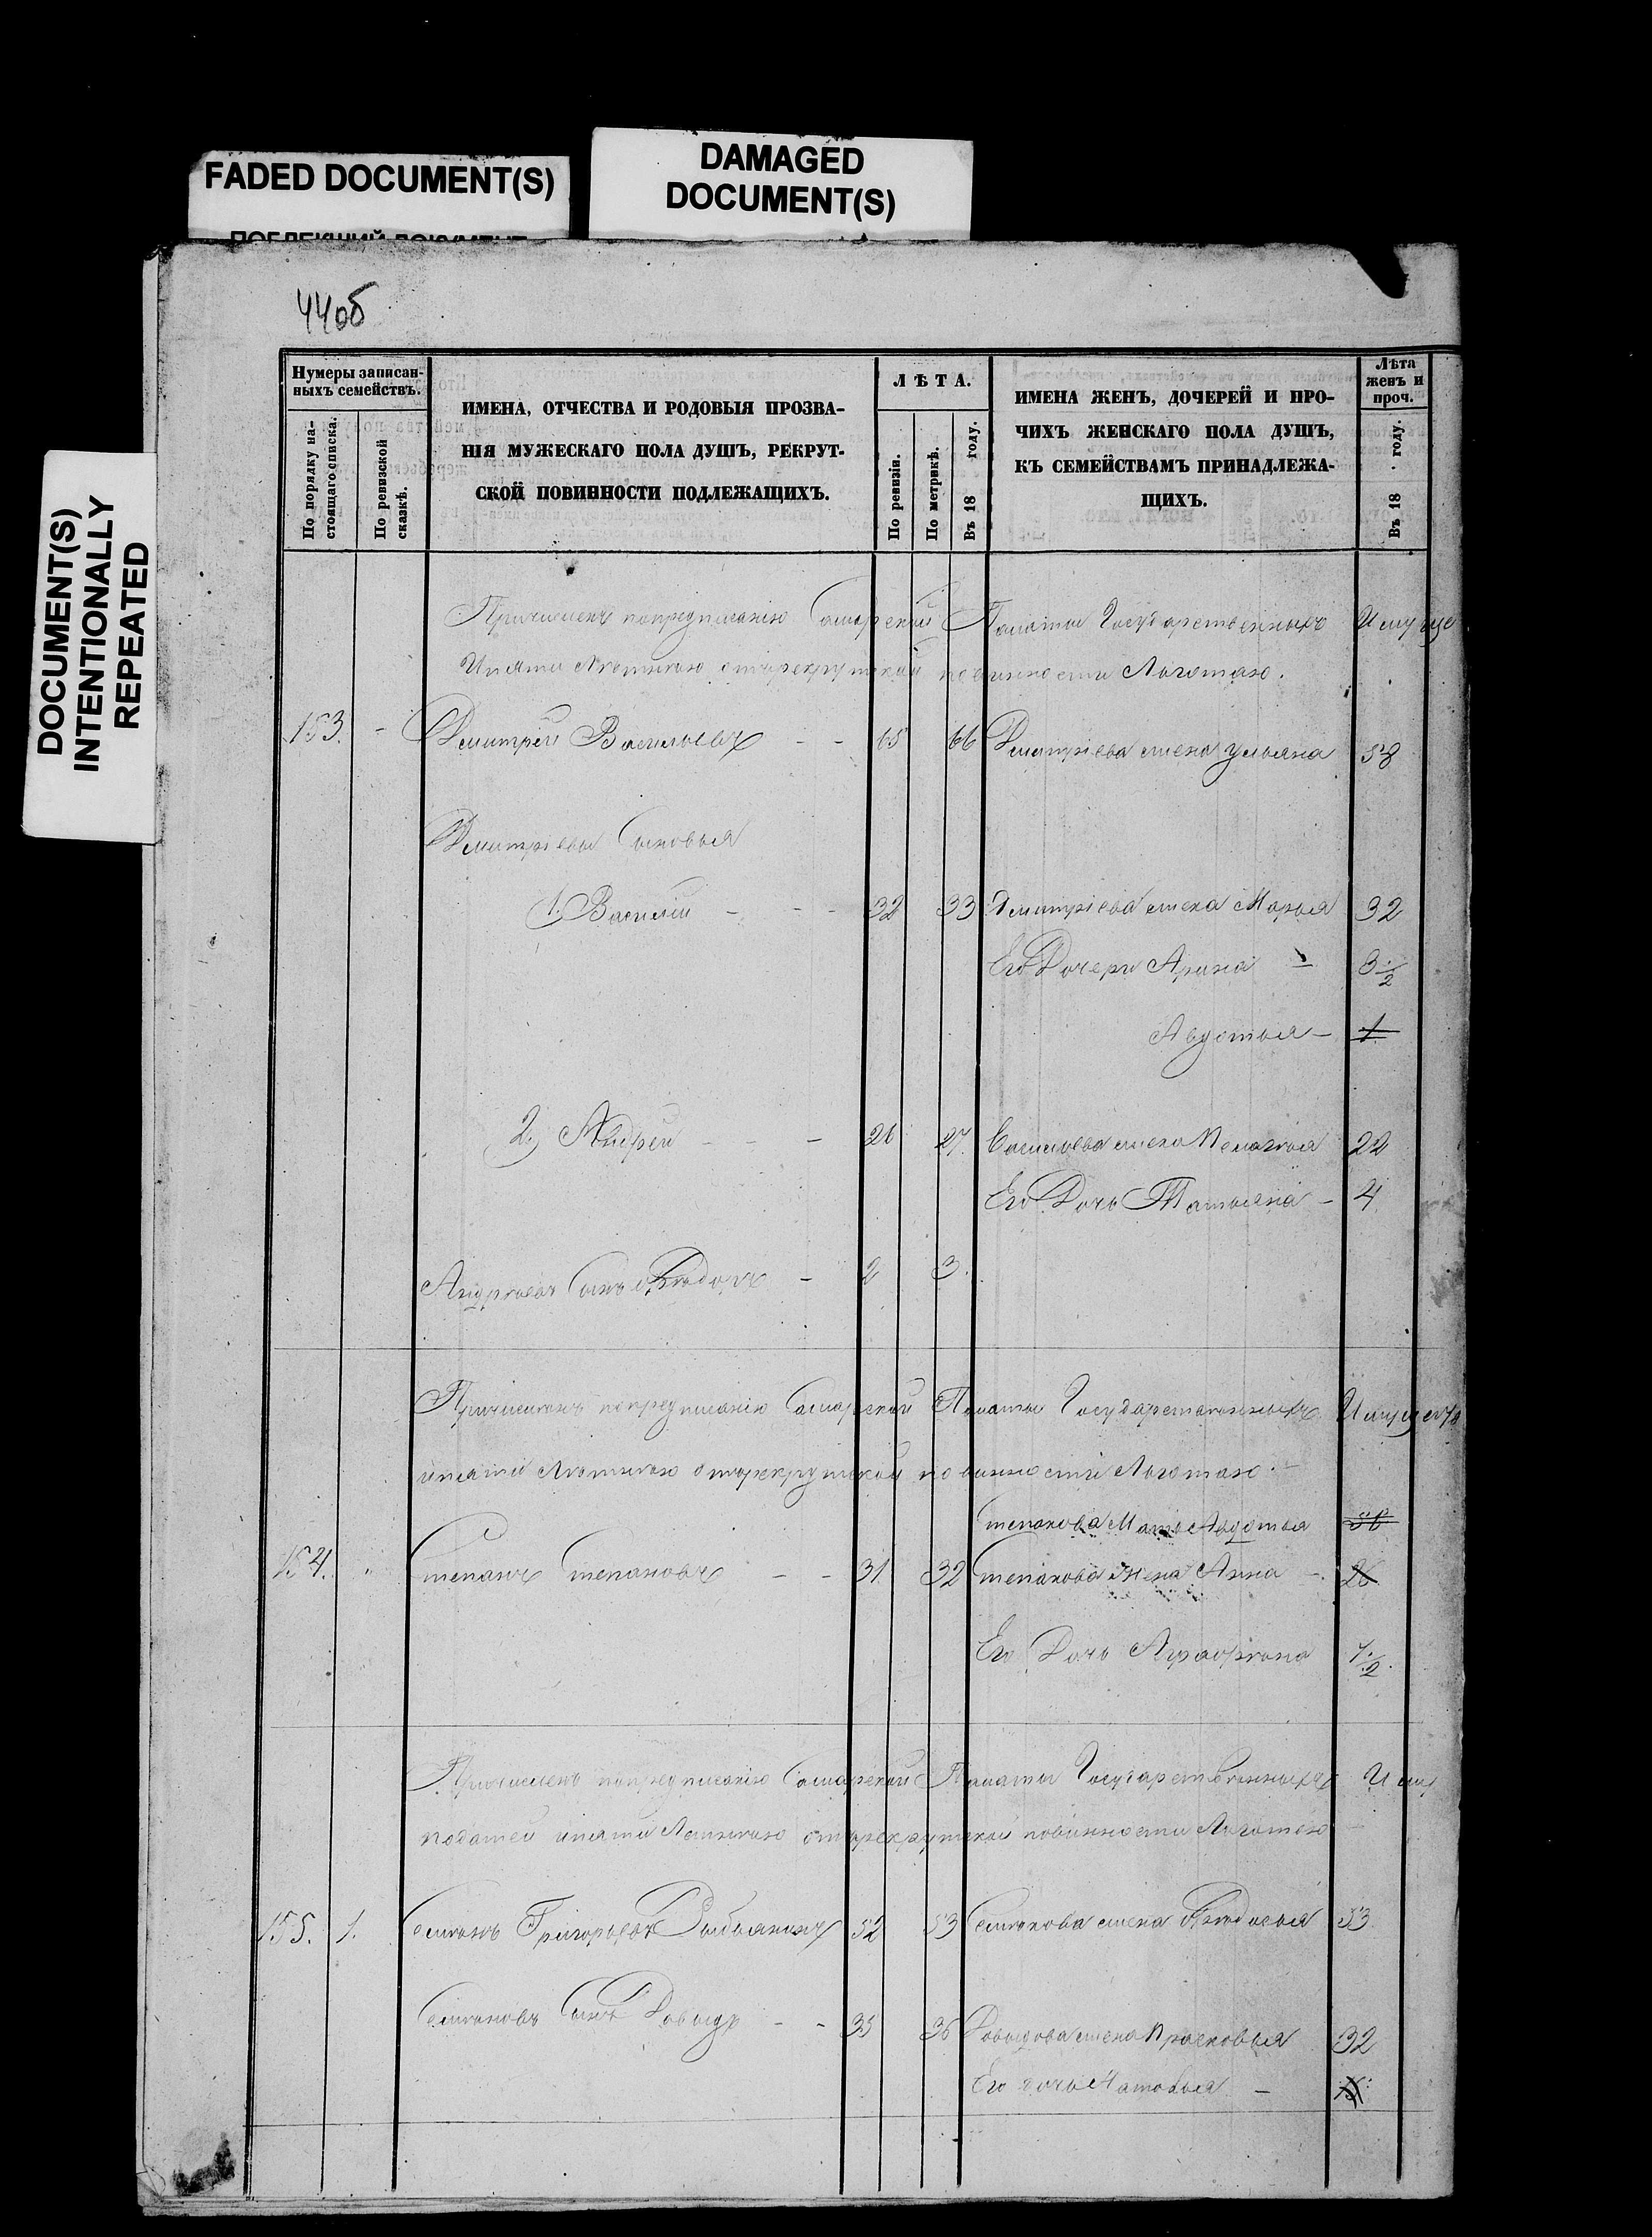 FADED DOCUMENT(S)
DAMAGED
DOCUMENT(S)
DOCUMENT(S)
INTENTIONALLY
REPEATED
44об
Нумеры записан-
ныхъ семействъ.
По порядку на-
стоящаго списка.
По ревизской
сказкѣ.
ИМЕНА, ОТЧЕСТВА И РОДОВЫЯ ПРОЗВА-
НІЯ МУЖЕСКАГО ПОЛА ДУШЪ, РЕКРУТ-
СКОЙ ПОВИННОСТИ ПОДЛЕЖАЩИХЪ.
ЛѢТА.
По ревизіи.
По метрикѣ.
Въ 18 году.
ИМЕНА ЖЕНЪ, ДОЧЕРЕЙ И ПРО-
ЧИХЪ ЖЕНСКАГО ПОЛА ДУШЪ,
КЪ СЕМЕЙСТВАМЪ ПРИНАДЛЕЖА-
ЩИХЪ.
Лѣта
женъ и
проч.
Въ 18 году.
Причисленъ попредписанію Самарской Палаты Государственныхъ Имуще
Ипяти Лѣтнею отърекрутской повинности Льготою.
153. - Дмитрей Васильевъ - - 65 66 Дмитріева жена Ульяна 58
Дмитріевы Сыновья
1. Василій - - - 32 33 Дмитріева жена Марья 32
Его Дочери Арина - 3 1/2
Авдотья - 1
2. Андрей - - - 26 27. Васильева жена Пелагѣя 22
Его Дочь Татьяна - 4
Андрѣевъ Сынъ Ѳѣдоръ - 2 3.
Причисленъ попредписанію Самарской Палаты Государственныхъ Имуществ
ипяти Лѣтнею отърекрутской повинности Льготою. -
Степанова Мать Авдотья 56
154. " Степанъ Степановъ - - 31 32 Степанова Жена Анна - 26
Его Дочь Аграфѣна 1/2.
Причисленъ попредписанію Самарской Палаты Государственныхъ Иму
податей ипяти Лѣтнею отърекрутской повинности Льготою
155. 1. Семенъ Григорьевъ 52 53 Семенова жена Ѳѣдосья 53
Семеновъ Сынъ Давыдъ - - 35 36 Давыдова жена Прасковья 32
Его дочь -